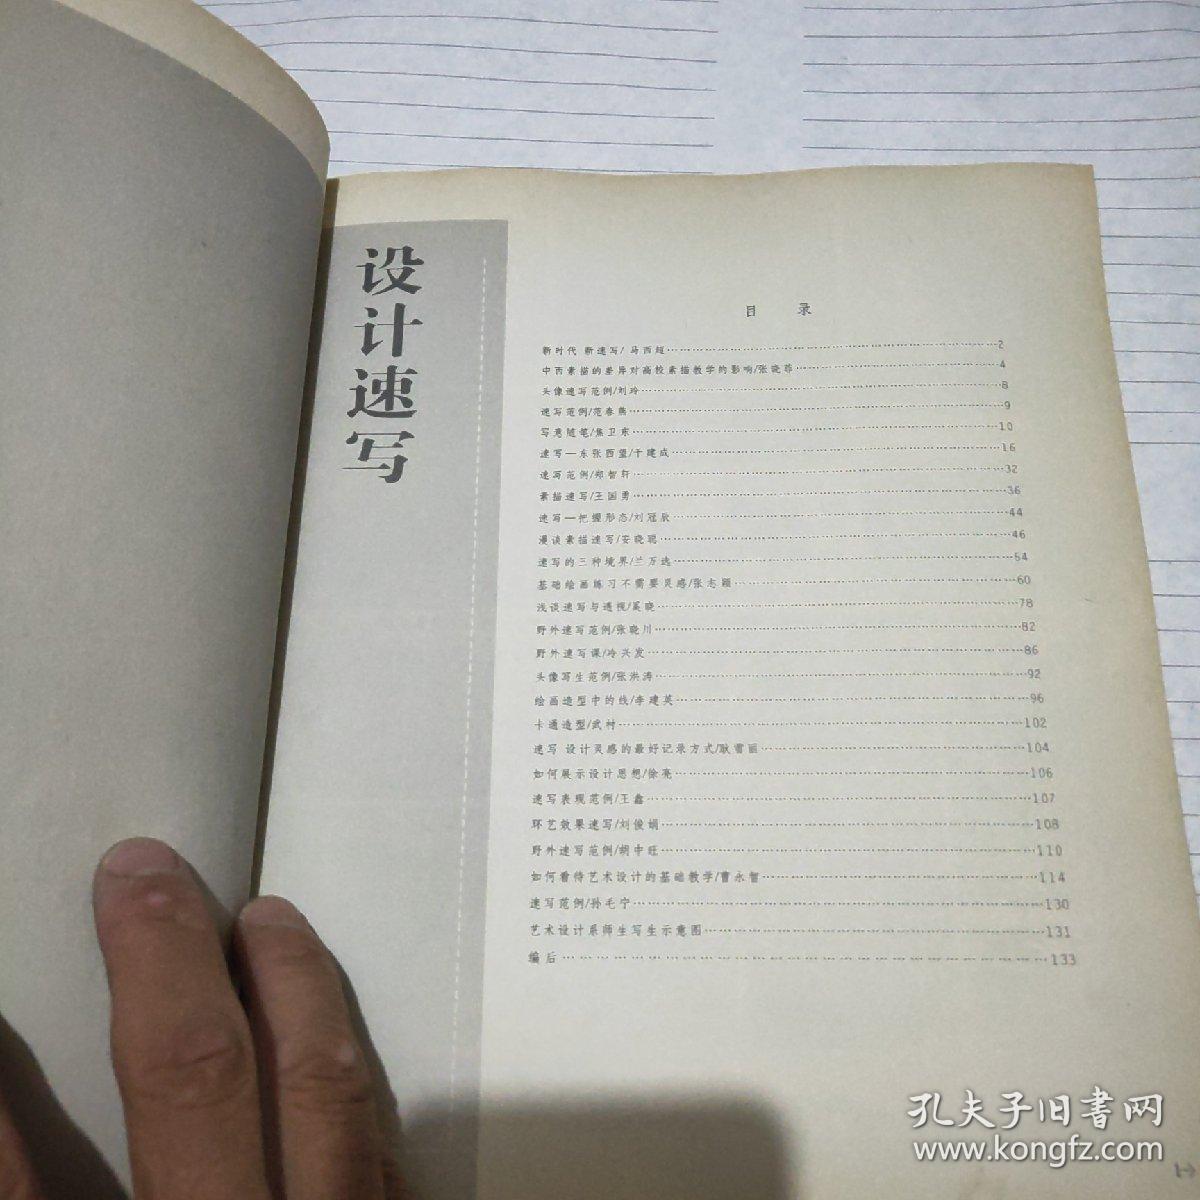 设计速写
目 录
新时代 新速写/ 马西超……2
中西素描的差异对高校素描教学的影响/张晓菲……4
头像速写范例/刘玲……8
速写范例/范春燕……9
写意随笔/焦卫东……10
速写—东张西望/于建成……16
速写范例/郑智轩……32
素描速写/王国勇……36
速写—把握形态/刘冠欣……44
漫谈素描速写/安晓聪……46
速写的三种境界/兰万选……54
基础绘画练习不需要灵感/张志颖……60
浅谈速写与透视/奚晓……78
野外速写范例/张晓川……82
野外速写课/冷兴发……86
头像写生范例/张洪涛……92
绘画造型中的线/李建英……96
卡通造型/武村……102
速写 设计灵感的最好记录方式/耿蕾丽……104
如何展示设计思想/徐亮……106
速写表现范例/王鑫……107
环艺效果速写/刘俊娟……108
野外速写范例/胡中旺……110
如何看待艺术设计的基础教学/曹永智……114
速写范例/孙毛宁……130
艺术设计系师生写生示意图……131
编后……133
孔夫子旧书网
www.kongfz.com